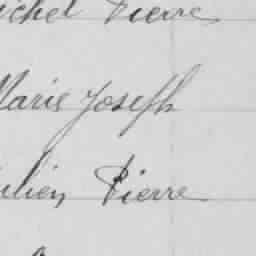 ichel Pierre
Marie Joseph
ulien Pierre